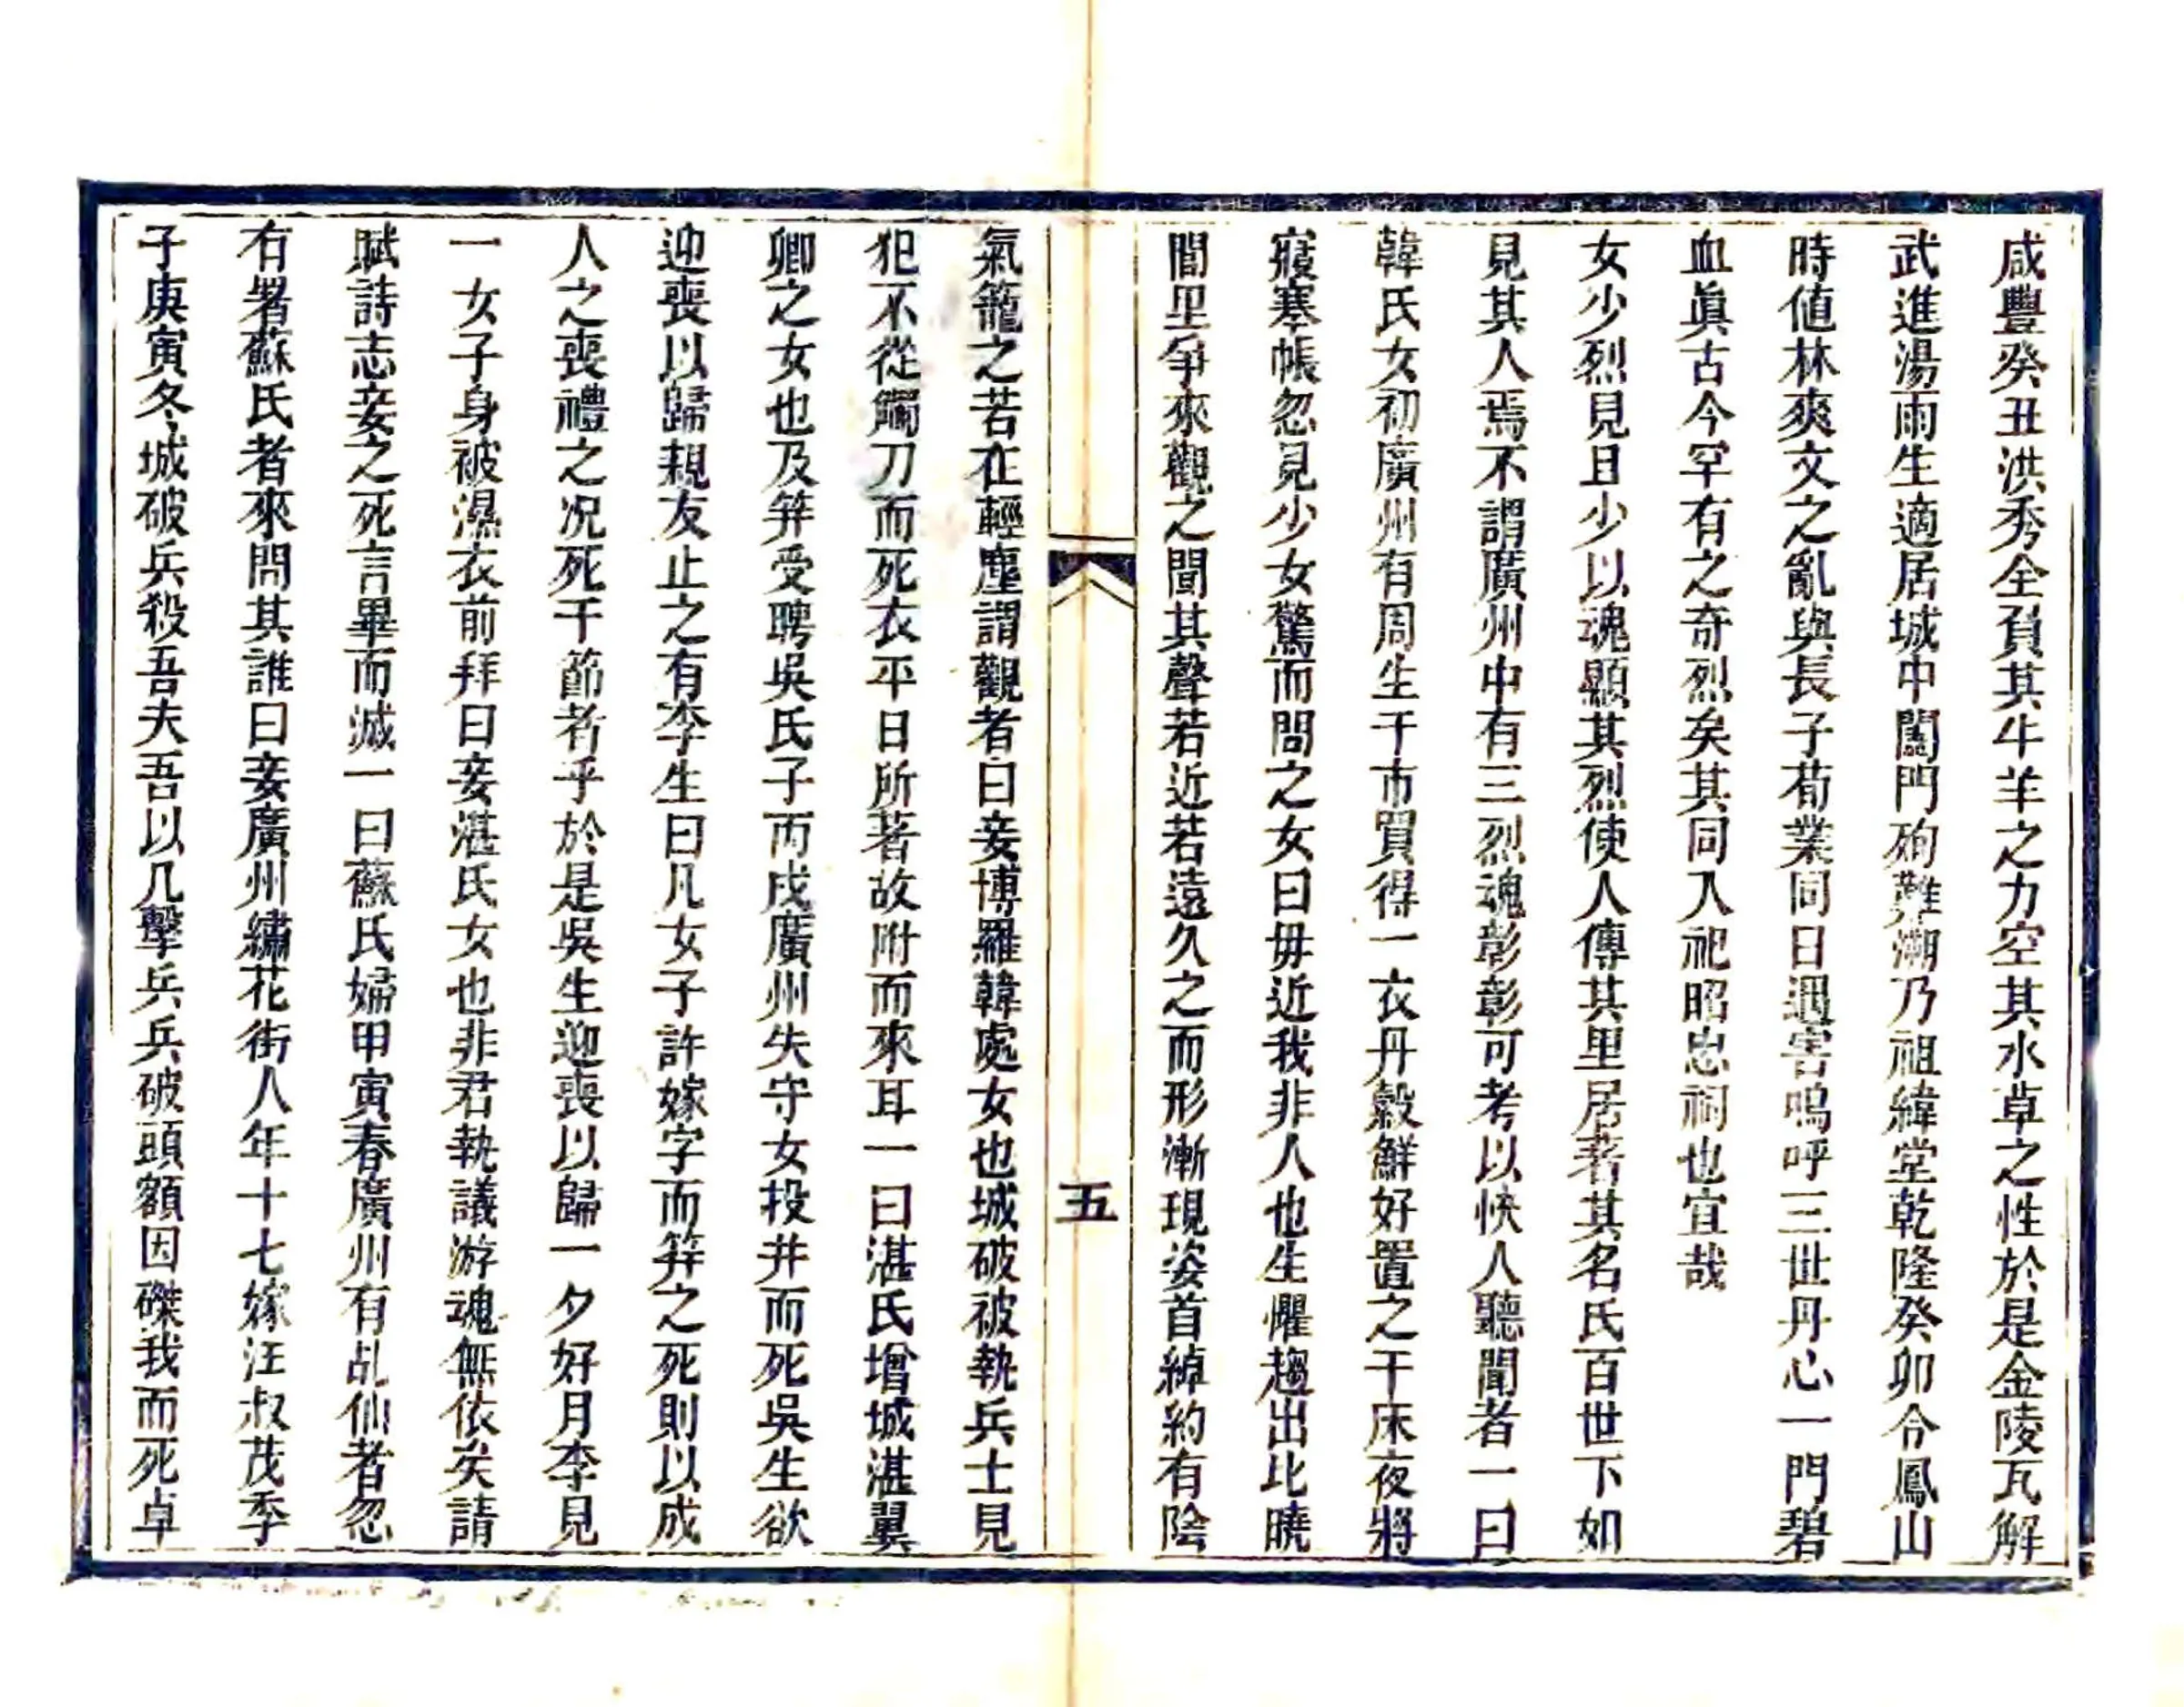 咸豐癸丑洪秀全負其牛羊之力空其水草之性於是金陵瓦解
武進湯雨生適居城中闔門殉難溯乃祖緯堂乾隆癸卯令鳳山
時值林爽文之亂與長子荀業同日遇害嗚呼三世丹心一門碧
血眞古今罕有之奇烈矣其同入祀昭忠祠也宜哉
女少烈見且少以魂顯其烈使人傳其里居著其名氏百世下如
見其人焉不謂廣州中有三烈魂彰彰可考以快人聽聞者一曰
韓氏女初廣州有周生于市買得一衣丹縠鮮好置之于床夜將
寢搴帳忽見少女驚而問之女曰毋近我非人也生懼趨出比曉
閭里爭來觀之聞其聲若近若遠久之而形漸現姿首綽約有陰
五
氣籠之若在輕塵謂觀者曰妾博羅韓處女也城破被執兵士見
犯不從觸刀而死衣平日所著故附而來耳一曰湛氏增城湛翼
卿之女也及笄受聘吳氏子丙戌廣州失守女投井而死吳生欲
迎喪以歸親友止之有李生曰凡女子許嫁字而笄之死則以成
人之喪禮之况死于節者乎於是吳生迎喪以歸一夕好月李見
一女子身被濕衣前拜曰妾湛氏女也非君執議游魂無依矣請
賦詩志妾之死言畢而滅一曰蘇氏婦甲寅春廣州有乩仙者忽
有署蘇氏者來問其誰曰妾廣州繡花街人年十七嫁汪叔茂季
子庚寅冬城破兵殺吾夫吾以几擊兵兵破頭額因磔我而死卓